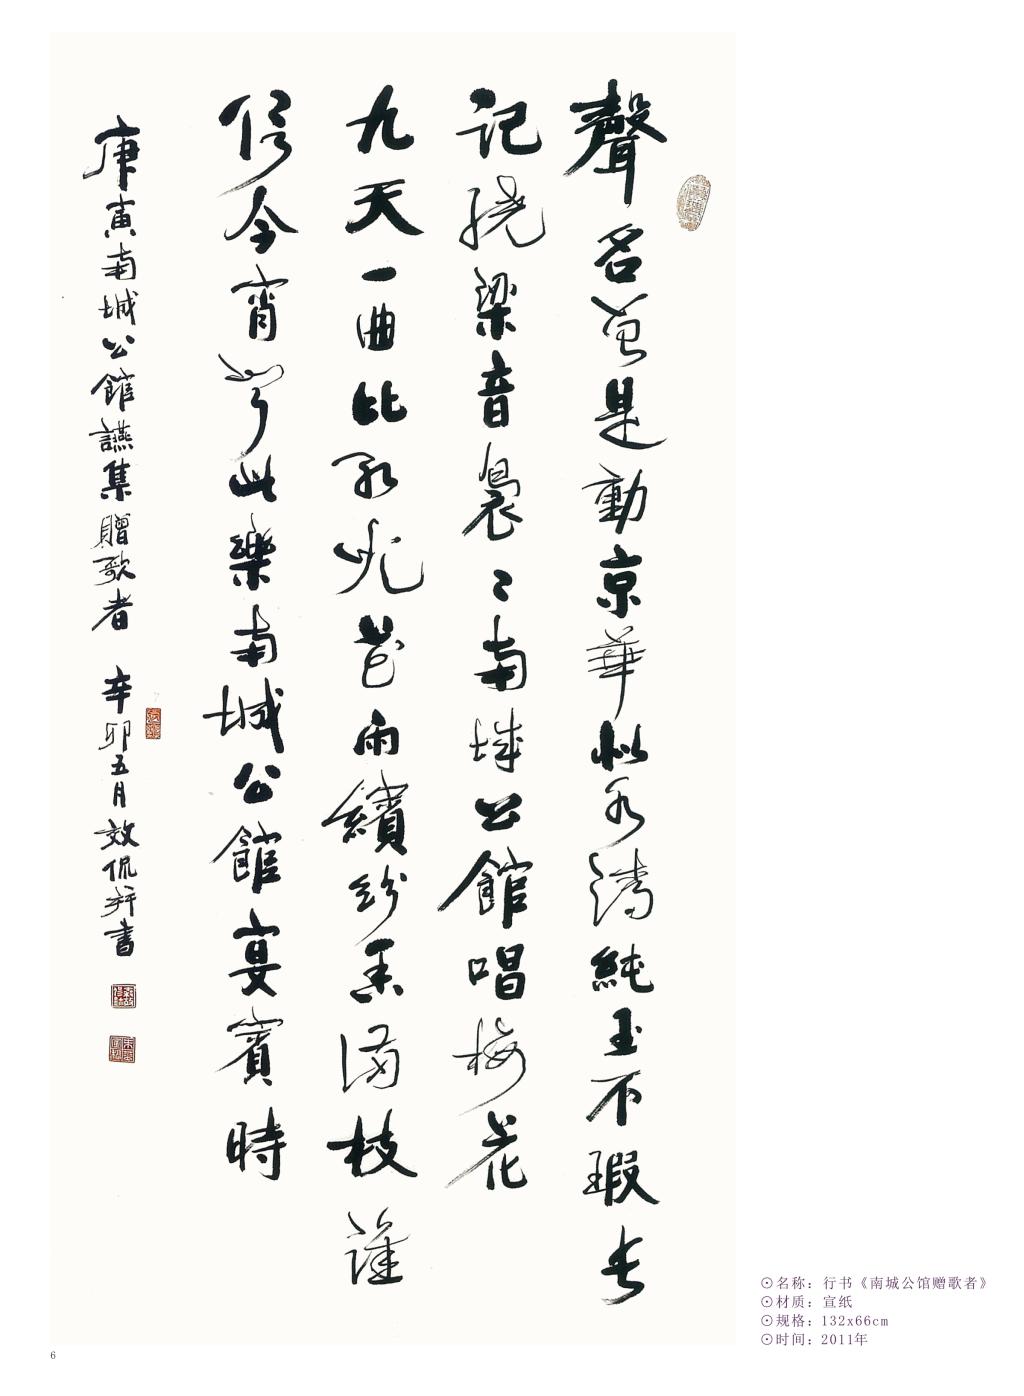 聲名曾是動京華似水清純玉不瑕長
記繞梁音裊〻南城公館唱梅花
九天一曲比花雨繽紛香滿枝
信今宵此樂南城公館宴賓時
庚寅南城公館讌集贈歌者 辛卯五月效侃并書
⊙名称：行书《南城公馆赠歌者》
⊙材质：宣纸
⊙规格：132x66cm
⊙时间：2011年
6